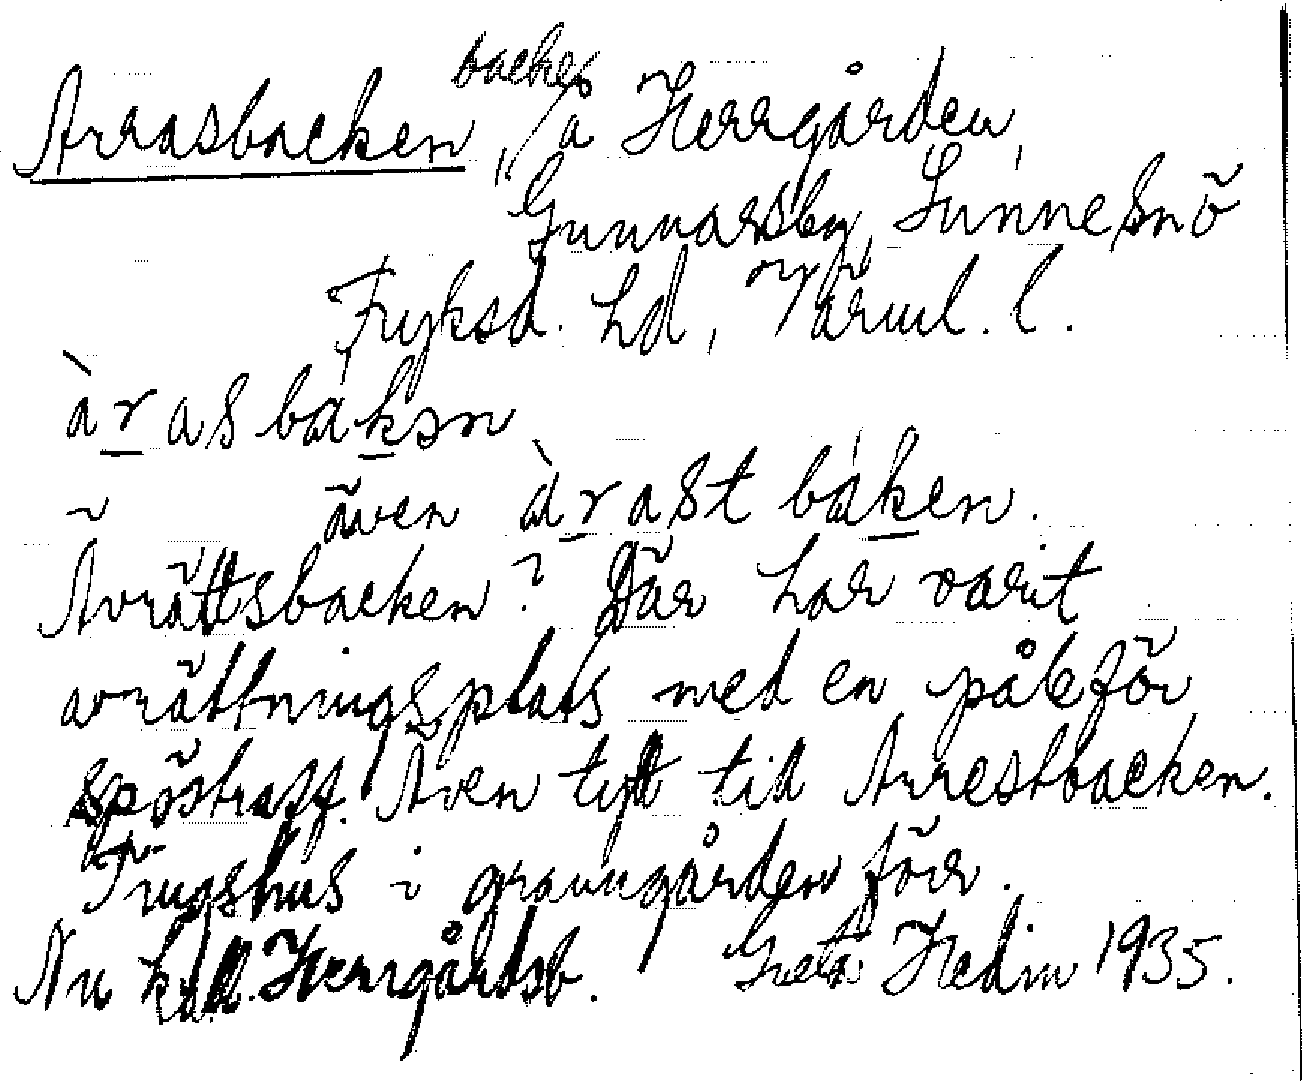 Arrasbacken, backe å Herrgården,
Gunnarsby, Sunne sn
Fryksd. hd, Värml. l.
àrasbákən
även àrastbáken.
Avrättsbacken? Där har varit
avrättningsplats med en påle för
spöstraff. Även tytt tid Arrestbacken.
Tingshus i granngården förr.
Nu kall. Herrgårdsb. Greta Hedin 1935.